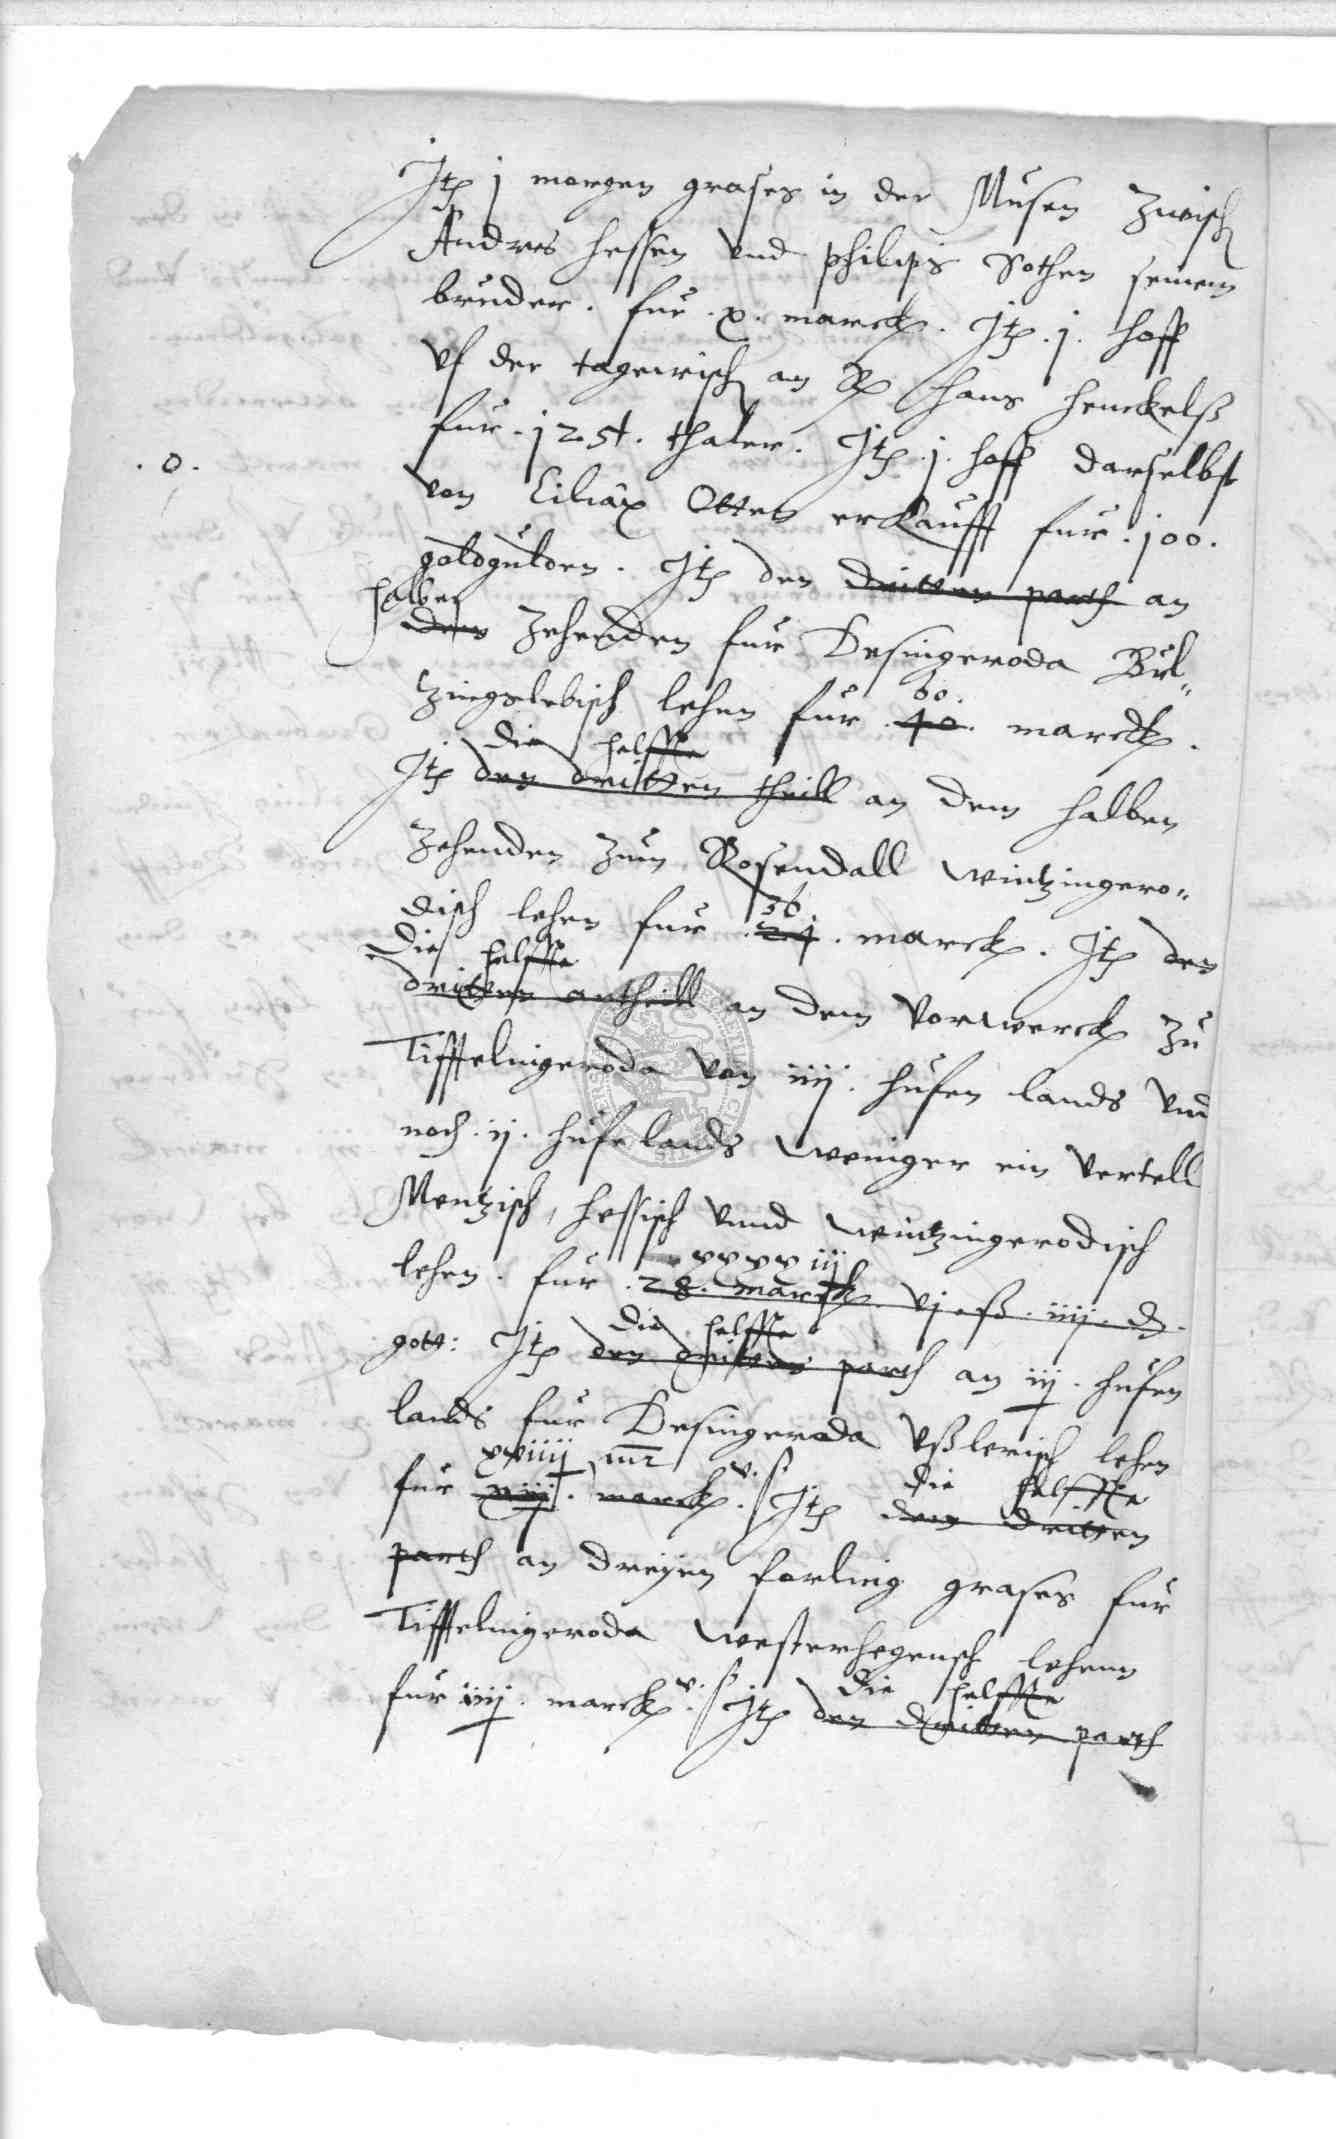 Jtem j morgen grases in der Musen zwisch
Andres Hessen vnd philips Sothen seinem
bruder. fur .x. marck. Jtem .j. hoff
vf der tagewisch an Hans Henckelß
fur .125. thaler. Jtem .j. hoff darselbst
.o.
von Ciliax Otten erkaufft fur .100.
goldgulden. Jtem den dritten parth an
halben
dem Zehenden fur Desingeroda Bul„
60.
zingslebisch lehen fur .40. marck.
die helffte
Jtem den dritten theill an dem halben
Zehenden zum Rosendall wintzingero„
36
disch lehen fur .24. marck. Jtem den
die helffte
dritten antheill an dem Vorwerck zu
Tifftelingeroda von iiij. hufen lands vnd
noch .ij. hufe lands weniger ein vertell
Mentzisch, hessisch vnnd wintzingerodisch
xxxxiij
lehen. fur .28. marck vj eß. iiij. d.
die helffte
gott: Jtem den dritten parth an iij. hufen
lands fur Desingeroda Vßlerisch lehen
xviiij mr
v. s.
die helffte
fur xiij. marck. Jtem den dritten
parth an dreyen forling grases fur
Tifftelingeroda westerhegensch lehenn
v. s.
die helffte
fur iiij. marck. Jtem den dritten parth